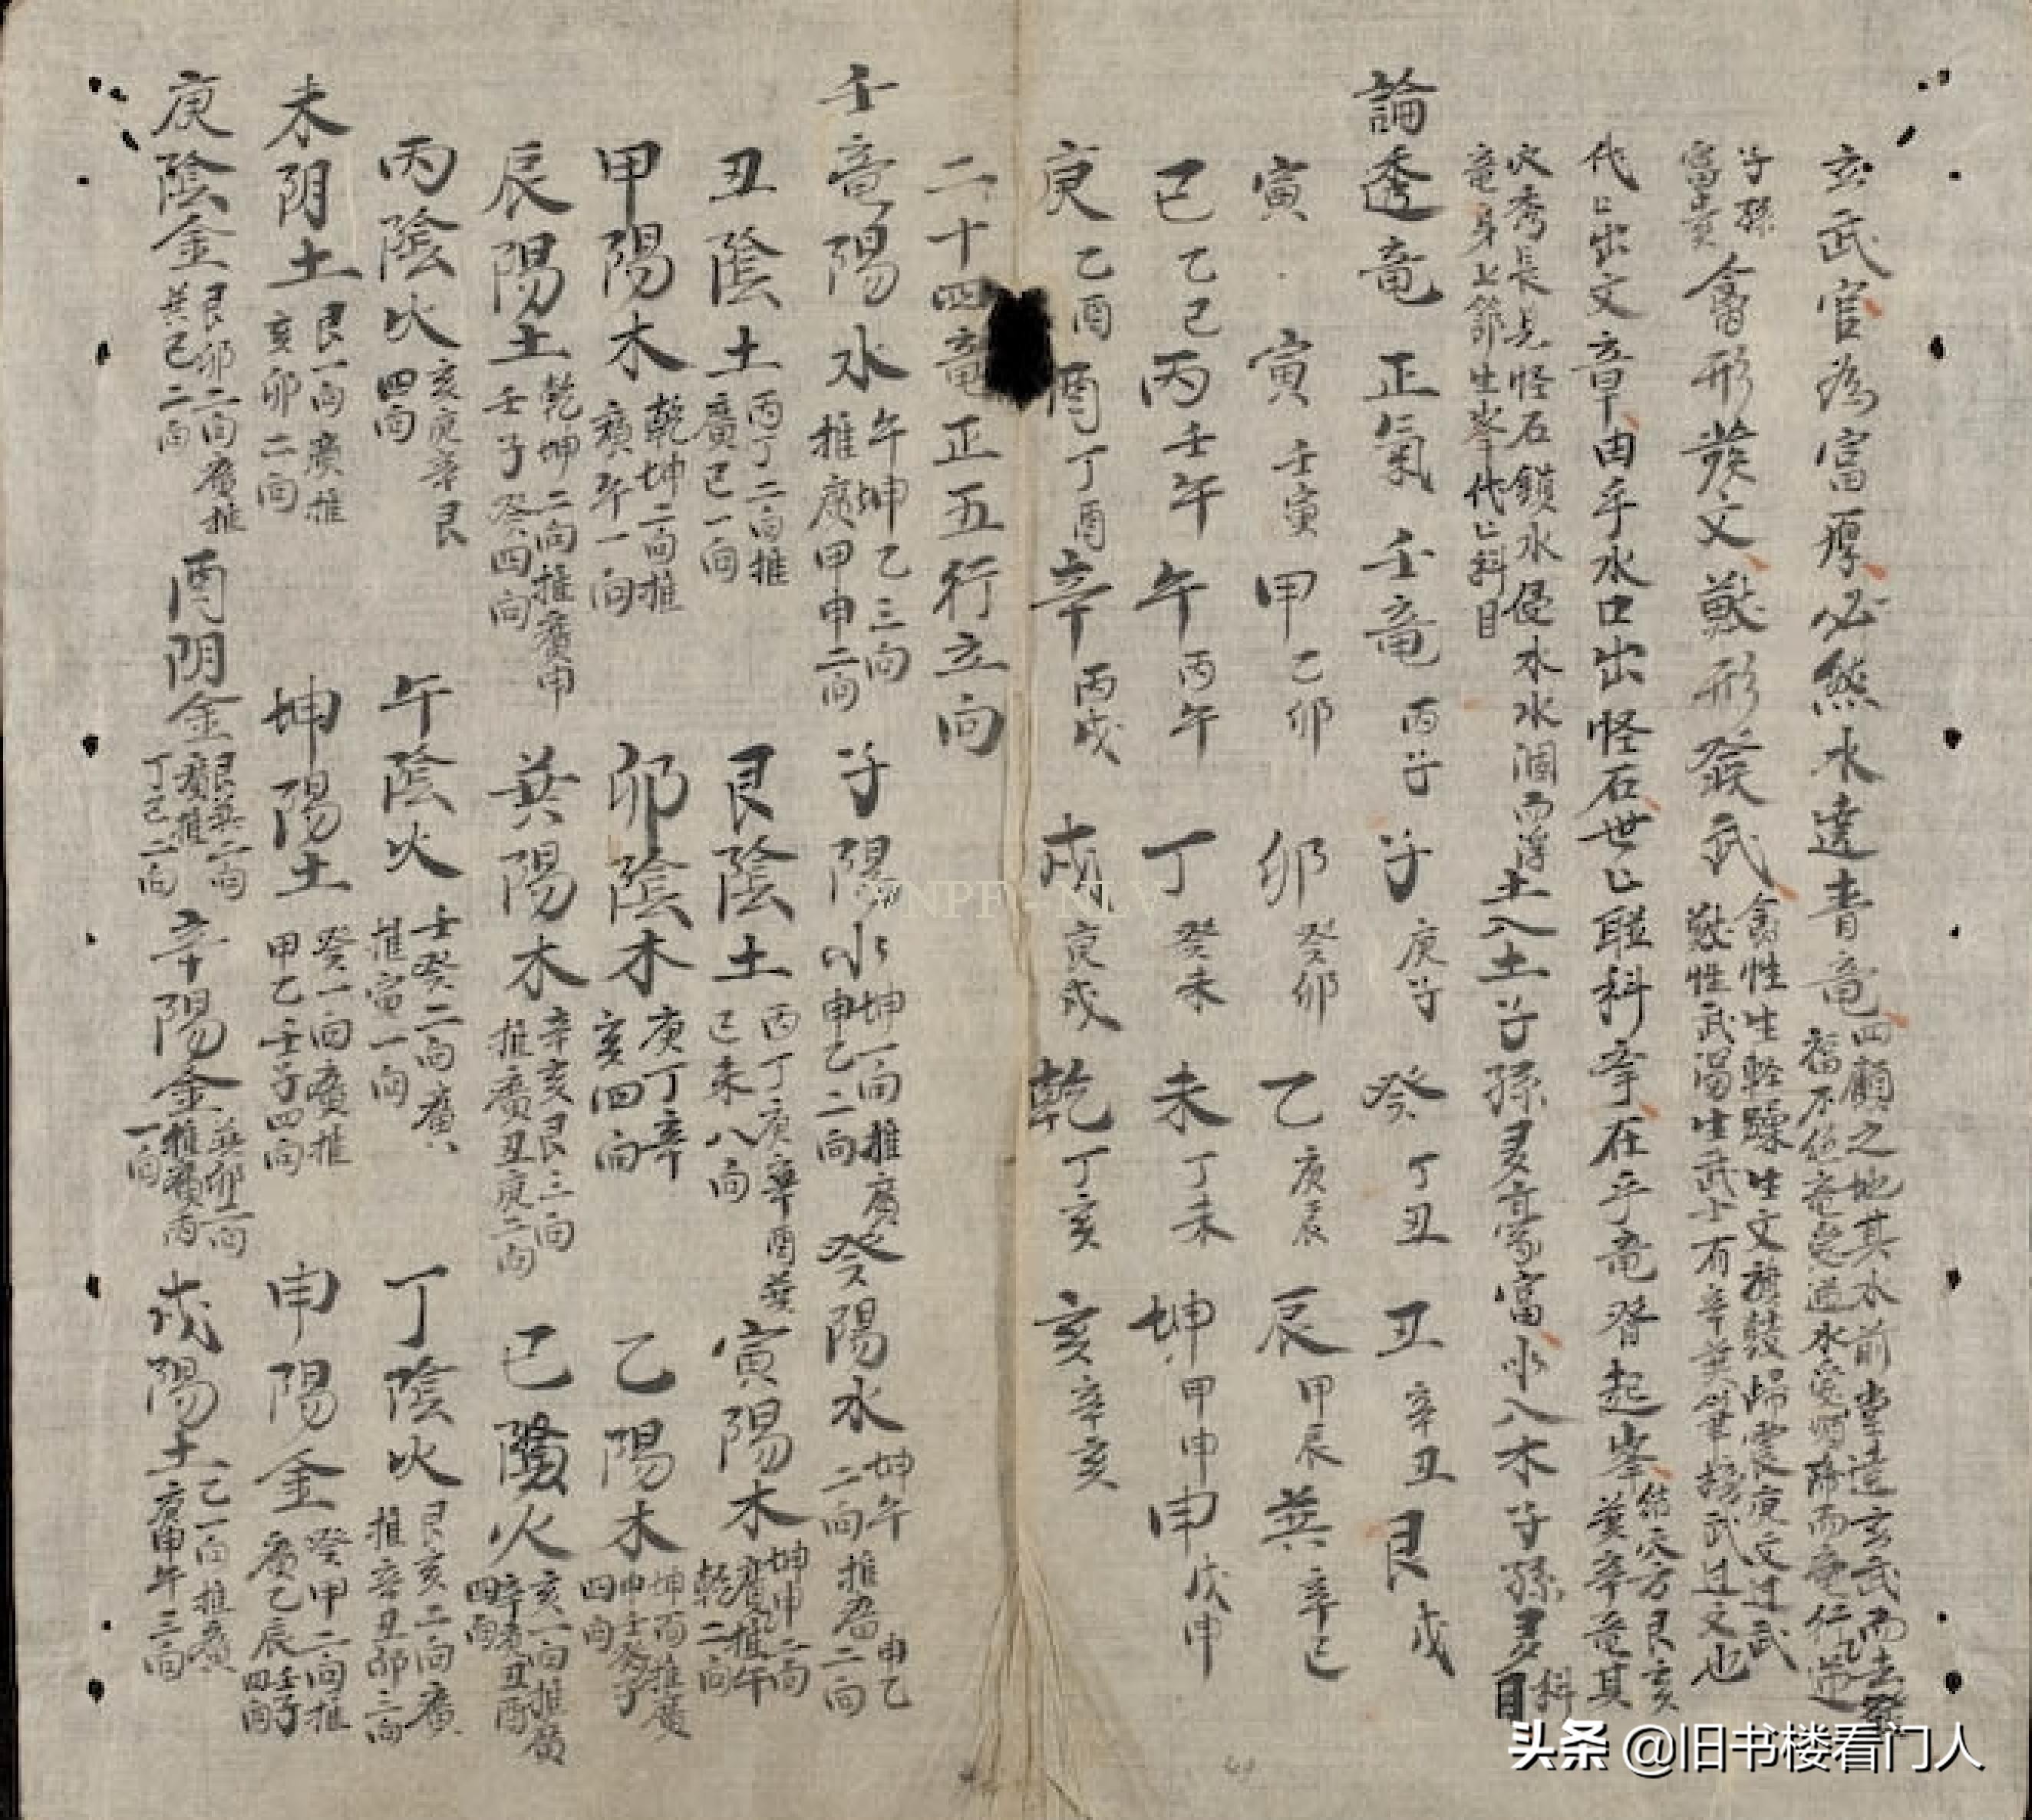 玄武官為富厚必然水遶青竜四顧之地其水前堂遶玄武而去
子孫富貴禽形發文獸形發武禽性生輕躁生文獸性武
代〻出文章由乎水口出怪石世〻聯科章在乎竜脊起峯結穴方艮亥巽辛竜其
穴秀長見怪石鎖水侵水水涸而浮土入土子孫多富水入木子孫多科目
竜身上節生峯代〻科目
論透竜正氣壬竜丙子子庚子癸丁丑丑辛丑艮戊
寅寅壬寅甲乙卯卯癸卯乙庚辰辰甲辰巽辛巳
巳乙巳丙壬午午丙午丁癸未未丁未坤甲申申戊申
庚乙酉酉丁酉辛丙戌戌庚戌乾丁亥亥辛亥
二十四竜正五行立向
壬竜陽水午坤乙三向推廣甲申二向子陽水坤一向推廣申乙二向癸陽水坤午二向推廣申乙二向
丑陰土丙丁二向推廣巳一向艮陰土丙丁庚辛酉巽巳未八向寅陽木坤申二向廣推午乾二向
甲陽木乾坤二向推廣午一向卯陰木庚丁辛亥四向乙陽木坤丙推廣申壬癸子四向
辰陽土乾坤二向推廣申壬子癸四向巽陽木辛亥艮三向推廣丑庚二向巳陰火亥一向推廣辛癸丑酉四向
丙陰火亥庚辛艮四向午陰火壬癸二向廣推寅一向丁陰火艮亥二向廣推辛丑卯三向
未阴土艮一向廣推亥卯二向坤陽土癸一向廣推甲乙壬子四向申陽金癸甲二向推廣乙辰壬子四向
庚陰金艮卯二向廣推巽巳二向酉阴金艮巽二向廣推丁巳二向辛陽金巽卯二向推廣丙一向戌陽土乙一向推廣庚申午三向
NPF - NLV
头条 @旧书楼看门人